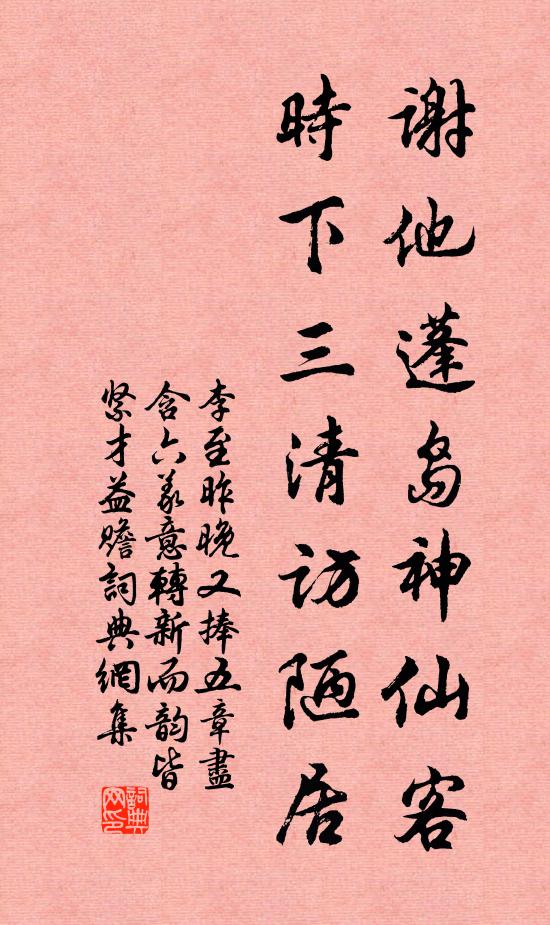 謝他蓬岛神仙客
時下三清访陋居
李至昨晚又捧五章盡
含六義意轉新而韵皆
紧才益贍詞典網集
詞典网印